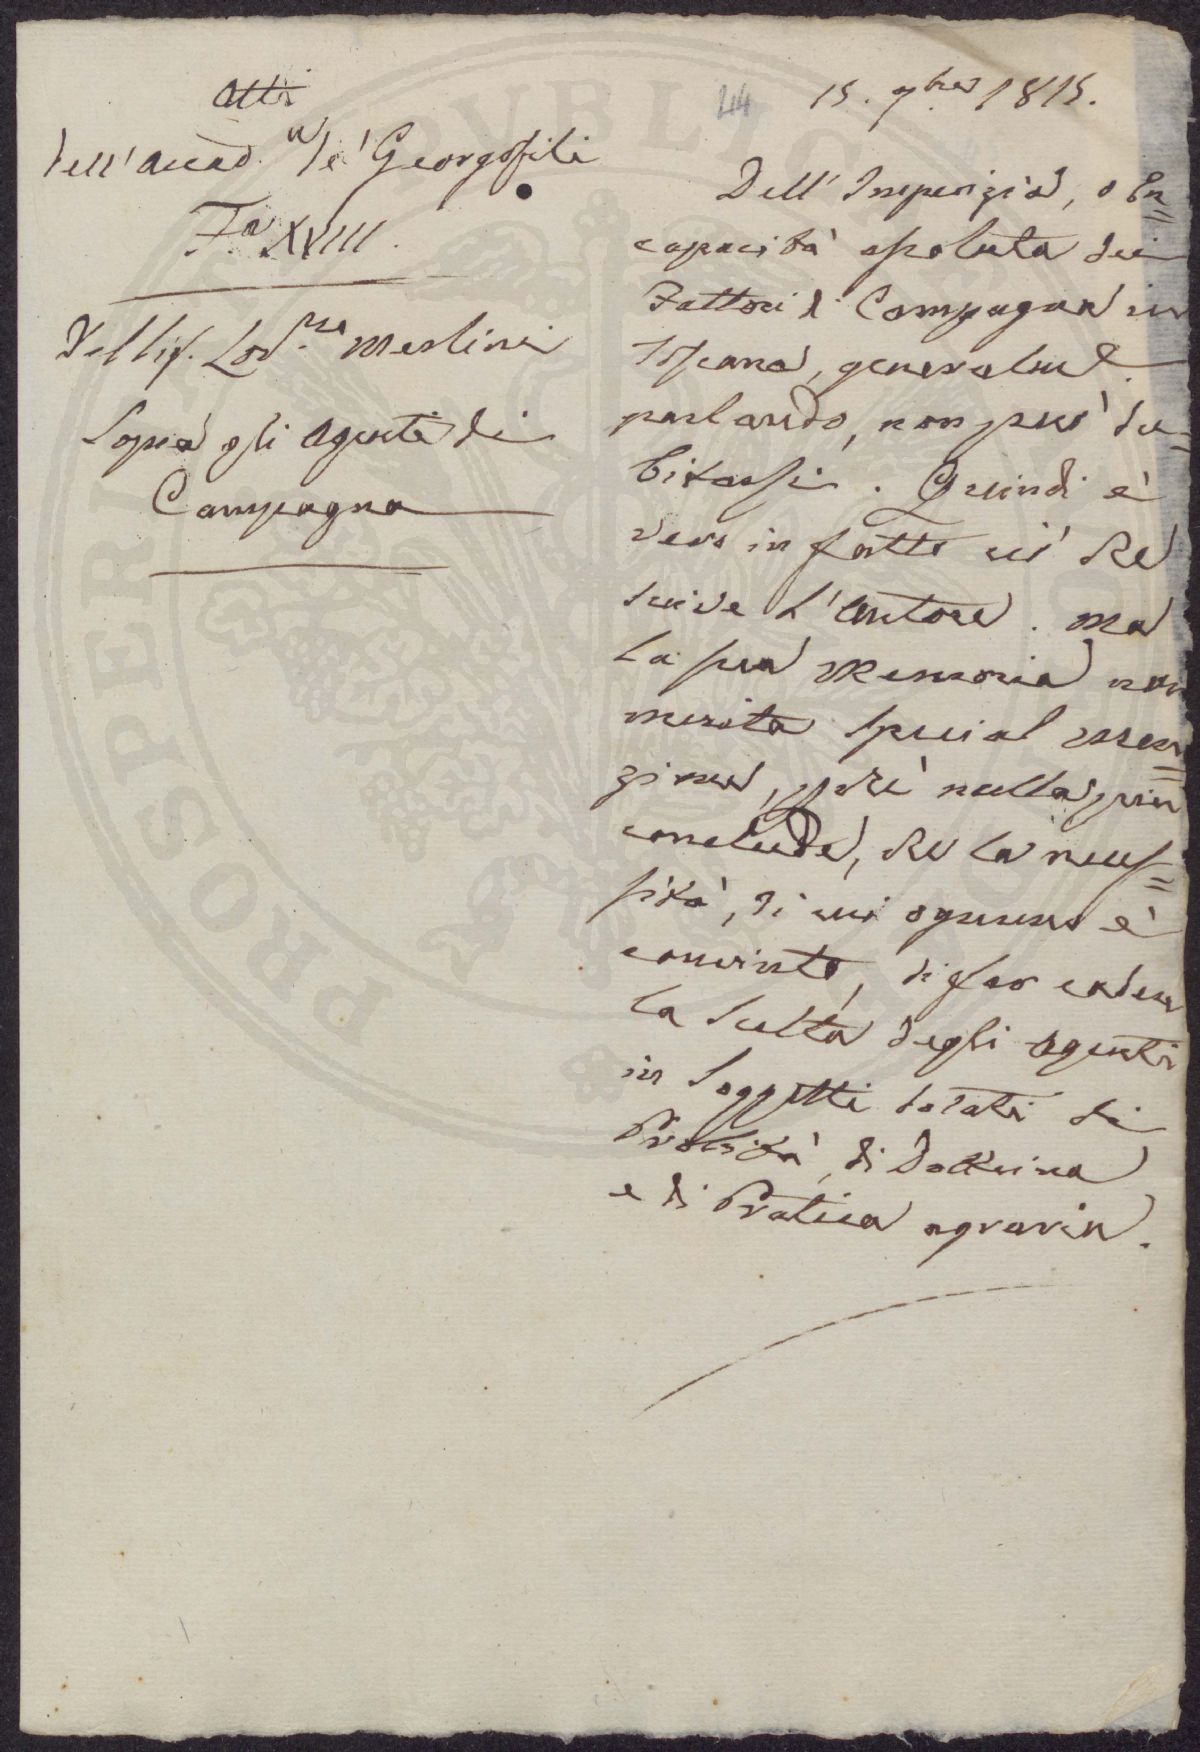 Atti
dell' Accad.a de' Georgofili
Fa XVIII.
Del Sig. Lod.co Merlini
Sopra gli Agenti di
Campagna
44
15. 9bre 1815.
Dell' Imperizia, o In=
capacità assoluta dei
Fattori di Campagna in
Toscana, generalmte
parlando, non può du=
bitarsi. Quindi è
vero in fatto ciò che
scrive l' Autore. Ma
la sua Memoria non
merita special men=
zione, perchè nulla più
conclude, che la neces=
sità, di cui ognuno è
convinto, di far cadere
la scelta degli Agenti
in Soggetti dotati di
Probità, di Dottrina
e di Pratica agraria.
PVBLICAE
PROSPERITATIS